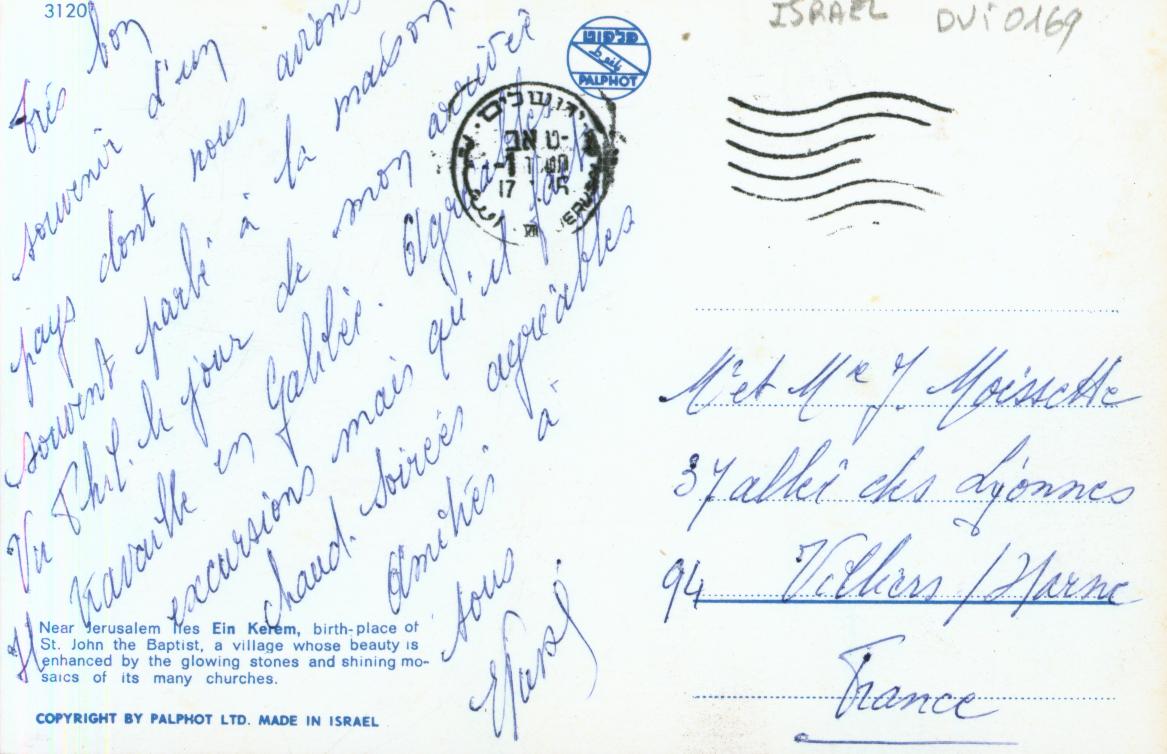 3120
Très bon
souvenir d'un
pays dont nous avions
souvent parlé à la maison.
Vu Phil. le jour de mon arrivée
Il travaille en Galilée. Agréables
excursions mais qu'il fait
chaud. soirées agréables
Amitiés à
tous
פלפוט
PALPHOT
ירושלים
JERUSALEM
17
VII
ISRAEL DVI0169
Mr et Me J. Moissette
37 allée des Lyonnes
94 Villiers / Marne
France
Near Jerusalem lies Ein Kerem, birth-place of
St. John the Baptist, a village whose beauty is
enhanced by the glowing stones and shining mo-
saics of its many churches.
COPYRIGHT BY PALPHOT LTD. MADE IN ISRAEL